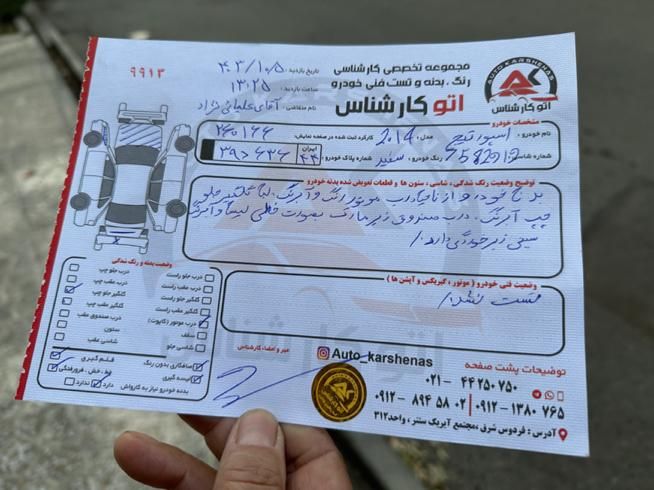 ۹۹۱۳
AUTO KARSHENAS
AK
اتو کارشناس
مجموعه تخصصی کارشناسی
رنگ ، بدنه و تست فنی خودرو
اتو کارشناس
تاریخ بازدید : ۴۰۳/۱۰/۵
ساعت بازدید : ۱۳:۲۵
نام متقاضی : آقای علیایی نژاد
مشخصات خودرو
نام خودرو : اسپورتیج مدل : 2014 کارکرد ثبت شده در صفحه نمایش :
شماره شاسی : رنگ خودرو : سفید شماره پلاک خودرو : ایران ۴۴
توضیح وضعیت رنگ شدگی ، شاسی ، ستون ها و قطعات تعویض شده بدنه خودرو
چپ آبرنگ. درب صندوق زیر مارک بصورت خطی لیسه و آبرنگ
سینی زیر خوردگی دارد /
وضعیت فنی خودرو ( موتور ، گیربکس و آپشن ها )
تست نشد /
وضعیت بدنه و رنگ شدگی
درب جلو راست درب جلو چپ
درب عقب راست درب عقب چپ
گلگیر جلو راست گلگیر جلو چپ
گلگیر عقب راست گلگیر عقب چپ
درب موتور (کاپوت) درب صندوق عقب
سقف ستون
شاسی جلو شاسی عقب
صافکاری بدون رنگ قلم گیری
لیسه گیری خط ، خش ، فرورفتگی
بدنه خودرو نیاز به کارواش دارد ندارد
مهر و امضاء کارشناس
Auto_karshenas
توضیحات پشت صفحه
۰۲۱- ۴۴ ۲۵۰ ۷۵۰
۰۹۱۲- ۸۹۴ ۵۸ ۰۲ | ۰۹۱۲- ۱۳۸۰ ۷۶۵
آدرس : فردوس شرق ،مجتمع آیریک سنتر ، واحد۳۱۲